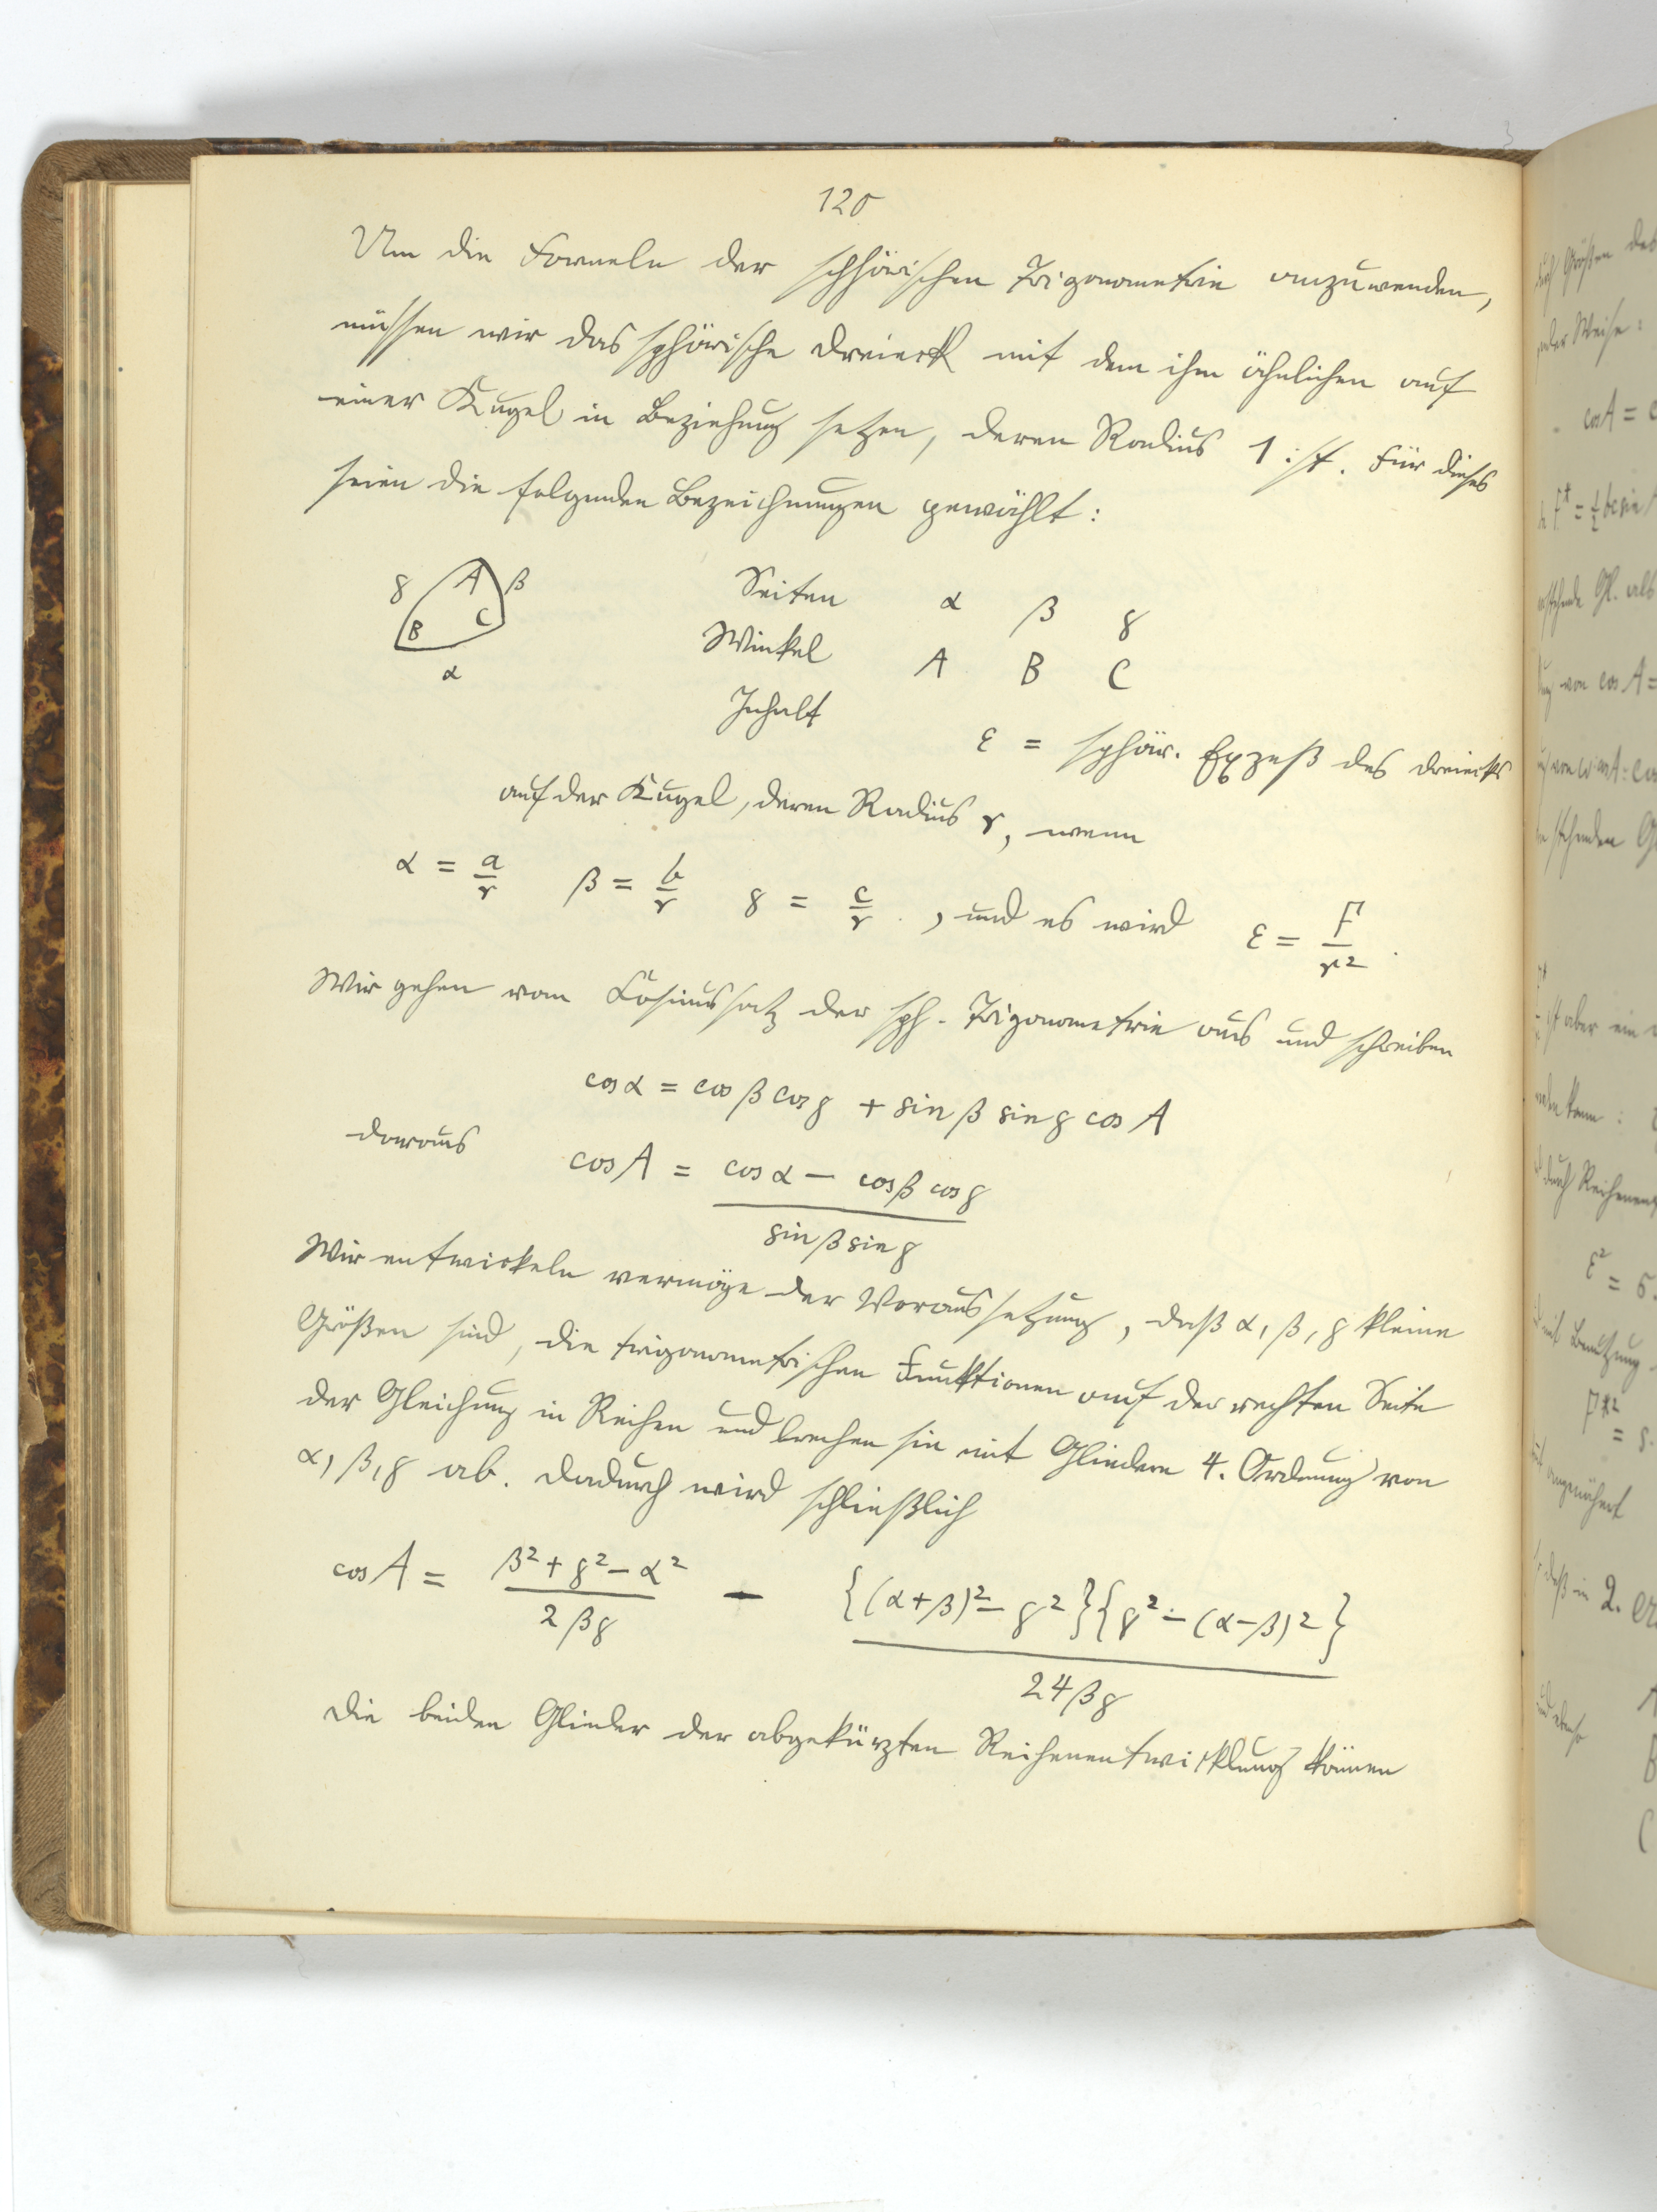 120
Um die Formeln der sphärischen Trigonometrie anzuwenden,
müssen wir das sphärische Dreieck mit dem ihm ähnlichen auf
einer Kugel in Beziehung setzen, deren Radius 1 ist. Für dieses
seien die folgenden Bezeichnungen gewählt:
γ A β
B C
α
Seiten α β γ
Winkel A B C
Inhalt ε = sphär. Exzeß des Dreiecks
auf der Kugel, deren Radius r, wenn
α = a/r β = b/r γ = c/r , und es wird ε = F/r²
Wir gehen vom Cosinussatz der sph. Trigonometrie aus und schreiben
cos α = cos β cos γ + sin β sin γ cos A
daraus cos A = (cos α − cos β cos γ)/(sin β sin γ)
Wir entwickeln vermöge der Voraussetzung, daß α, β, γ kleine
Größen sind, die trigonometrischen Funktionen auf der rechten Seite
der Gleichung in Reihen und brechen sie mit Gliedern 4. Ordnung von
α, β, γ ab. Dadurch wird schließlich
cos A = (β² + γ² − α²)/(2βγ) − ({(α+β)² − γ²}{γ² − (α−β)²})/(24βγ)
Die beiden Glieder der abgekürzten Reihenentwicklung können